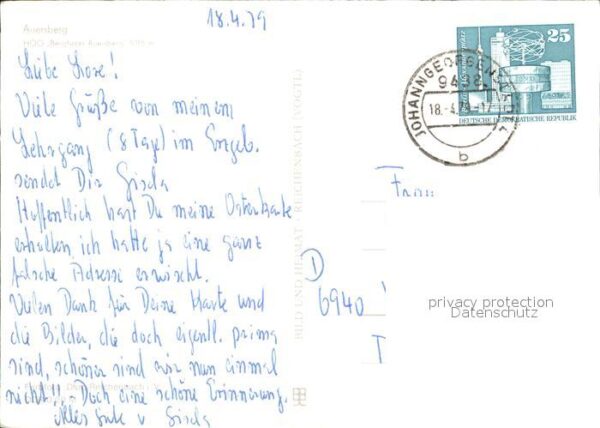 18.4.79
Auersberg
HOG "Berghotel Auersberg" 1018 m
Liebe Lore!
Viele Grüße von meinem
Lehrgang (8 Tage) im Erzgeb.
sendet Dir Gisela
Hoffentlich hast Du meine Osterkarte
erhalten, ich hatte ja eine ganz
falsche Adresse erwischt.
Vielen Dank für Deine Karte und
die Bilder, die doch eigentl. prima
sind, schöner sind wir nun einmal
nicht!! - Doch eine schöne Erinnerung.
Alles Gute v Gisela
BILD UND HEIMAT REICHENBACH (VOGTL)
25
DEUTSCHE DEMOKRATISCHE REPUBLIK
JOHANNGEORGENSTADT
18.-4.79-17
b
Frau
D
6940
privacy protection
Datenschutz